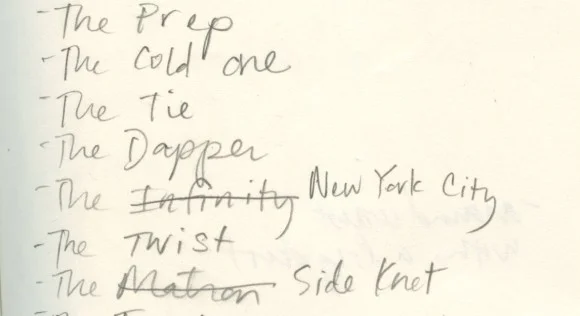 - The Prep
- The Cold one
- The Tie
- The Dapper
- The Infinity New York City
- The Twist
- The Matron Side Knot
- The